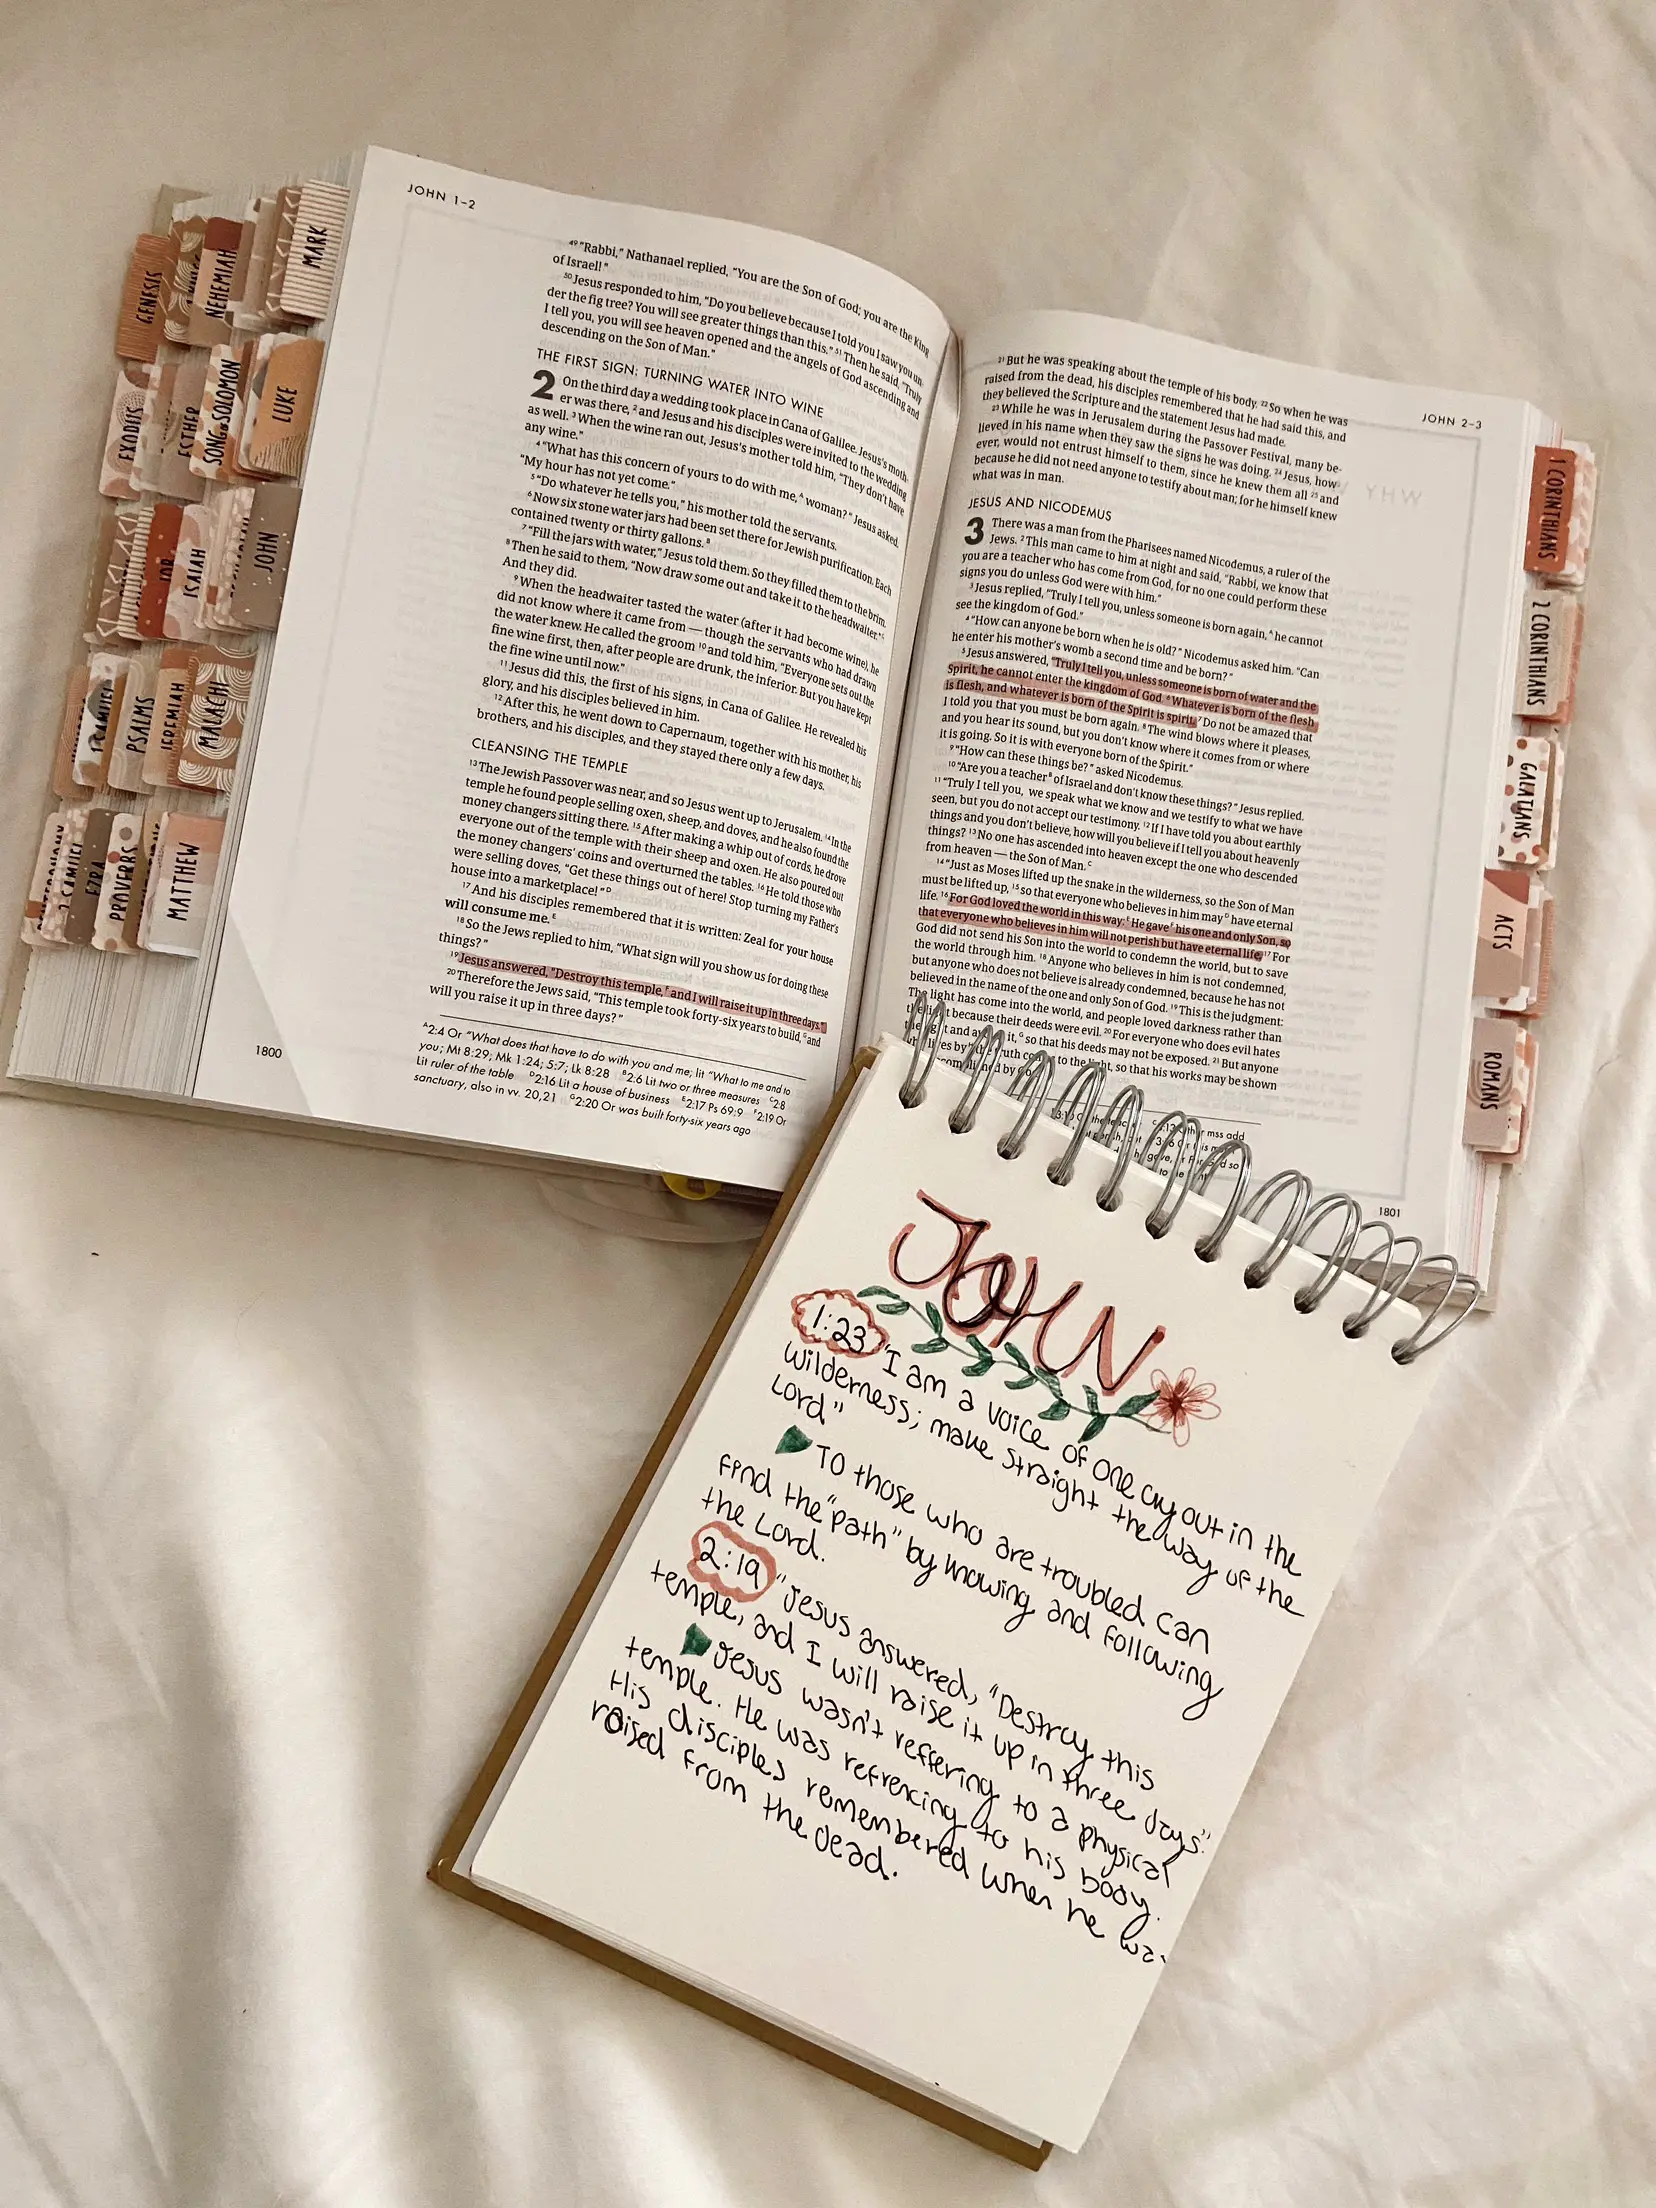 JOHN 1–2
⁴⁹ “Rabbi,” Nathanael replied, “You are the Son of God; you are the King
of Israel!”
⁵⁰ Jesus responded to him, “Do you believe because I told you I saw you un-
der the fig tree? You will see greater things than this.” ⁵¹ Then he said, “Truly
I tell you, you will see heaven opened and the angels of God ascending and
descending on the Son of Man.”
THE FIRST SIGN: TURNING WATER INTO WINE
2 On the third day a wedding took place in Cana of Galilee. Jesus’s moth-
er was there, ² and Jesus and his disciples were invited to the wedding
as well. ³ When the wine ran out, Jesus’s mother told him, “They don’t have
any wine.”
⁴ “What has this concern of yours to do with me,ᴬ woman?” Jesus asked.
“My hour has not yet come.”
⁵ “Do whatever he tells you,” his mother told the servants.
⁶ Now six stone water jars had been set there for Jewish purification. Each
contained twenty or thirty gallons.ᴮ
⁷ “Fill the jars with water,” Jesus told them. So they filled them to the brim.
⁸ Then he said to them, “Now draw some out and take it to the headwaiter.”ᶜ
And they did.
⁹ When the headwaiter tasted the water (after it had become wine), he
did not know where it came from — though the servants who had drawn
the water knew. He called the groom ¹⁰ and told him, “Everyone sets out the
fine wine first, then, after people are drunk, the inferior. But you have kept
the fine wine until now.”
¹¹ Jesus did this, the first of his signs, in Cana of Galilee. He revealed his
glory, and his disciples believed in him.
¹² After this, he went down to Capernaum, together with his mother, his
brothers, and his disciples, and they stayed there only a few days.
CLEANSING THE TEMPLE
¹³ The Jewish Passover was near, and so Jesus went up to Jerusalem. ¹⁴ In the
temple he found people selling oxen, sheep, and doves, and he also found the
money changers sitting there. ¹⁵ After making a whip out of cords, he drove
everyone out of the temple with their sheep and oxen. He also poured out
the money changers’ coins and overturned the tables. ¹⁶ He told those who
were selling doves, “Get these things out of here! Stop turning my Father’s
house into a marketplace!”ᴰ
¹⁷ And his disciples remembered that it is written: Zeal for your house
will consume me.ᴱ
¹⁸ So the Jews replied to him, “What sign will you show us for doing these
things?”
¹⁹ Jesus answered, “Destroy this temple,ᶠ and I will raise it up in three days.”
²⁰ Therefore the Jews said, “This temple took forty-six years to build,ᴳ and
will you raise it up in three days?”
ᴬ2:4 Or “What does that have to do with you and me; lit “What to me and to
you; Mt 8:29; Mk 1:24; 5:7; Lk 8:28 ᴮ2:6 Lit two or three measures ᶜ2:8
Lit ruler of the table ᴰ2:16 Lit a house of business ᴱ2:17 Ps 69:9 ᶠ2:19 Or
sanctuary, also in vv. 20,21 ᴳ2:20 Or was built forty-six years ago
1800
JOHN 2–3
²¹ But he was speaking about the temple of his body. ²² So when he was
raised from the dead, his disciples remembered that he had said this, and
they believed the Scripture and the statement Jesus had made.
²³ While he was in Jerusalem during the Passover Festival, many be-
lieved in his name when they saw the signs he was doing. ²⁴ Jesus, how-
ever, would not entrust himself to them, since he knew them all ²⁵ and
because he did not need anyone to testify about man; for he himself knew
what was in man.
JESUS AND NICODEMUS
3 There was a man from the Pharisees named Nicodemus, a ruler of the
Jews. ² This man came to him at night and said, “Rabbi, we know that
you are a teacher who has come from God, for no one could perform these
signs you do unless God were with him.”
³ Jesus replied, “Truly I tell you, unless someone is born again,ᴬ he cannot
see the kingdom of God.”
⁴ “How can anyone be born when he is old?” Nicodemus asked him. “Can
he enter his mother’s womb a second time and be born?”
⁵ Jesus answered, “Truly I tell you, unless someone is born of water and the
Spirit, he cannot enter the kingdom of God. ⁶ Whatever is born of the flesh
is flesh, and whatever is born of the Spirit is spirit. ⁷ Do not be amazed that
I told you that you must be born again. ⁸ The wind blows where it pleases,
and you hear its sound, but you don’t know where it comes from or where
it is going. So it is with everyone born of the Spirit.”
⁹ “How can these things be?” asked Nicodemus.
¹⁰ “Are you a teacherᴮ of Israel and don’t know these things?” Jesus replied.
¹¹ “Truly I tell you, we speak what we know and we testify to what we have
seen, but you do not accept our testimony. ¹² If I have told you about earthly
things and you don’t believe, how will you believe if I tell you about heavenly
things? ¹³ No one has ascended into heaven except the one who descended
from heaven — the Son of Man.ᶜ
¹⁴ “Just as Moses lifted up the snake in the wilderness, so the Son of Man
must be lifted up, ¹⁵ so that everyone who believes in him mayᴰ have eternal
life. ¹⁶ For God loved the world in this way:ᴱ He gaveᶠ his one and only Son, so
that everyone who believes in him will not perish but have eternal life. ¹⁷ For
God did not send his Son into the world to condemn the world, but to save
the world through him. ¹⁸ Anyone who believes in him is not condemned,
but anyone who does not believe is already condemned, because he has not
believed in the name of the one and only Son of God. ¹⁹ This is the judgment:
The light has come into the world, and people loved darkness rather than
the light because their deeds were evil. ²⁰ For everyone who does evil hates
the light and it,ᴳ so that his deeds may not be exposed. ²¹ But anyone
lives by the truth to the light, so that his works may be shown
by
mss add
1801
GENESIS
NEHEMIAH
MARK
EXODUS
ESTHER
SONG OF SOLOMON
LUKE
JOB
ISAIAH
JOHN
PSALMS
JEREMIAH
MALACHI
2 SAMUEL
EZRA
PROVERBS
MATTHEW
1 CORINTHIANS
2 CORINTHIANS
GALATIANS
ACTS
ROMANS
JOHN
1:23 "I am a voice of one cry out in the
wilderness; make straight the way of the
Lord"
To those who are troubled can
find the "path" by knowing and following
the Lord.
2:19 "Jesus answered, "Destroy this
temple, and I will raise it up in three days."
Jesus wasn't reffering to a physical
temple. He was refrencing to his body.
His disciples remembered when he wa
raised from the dead.